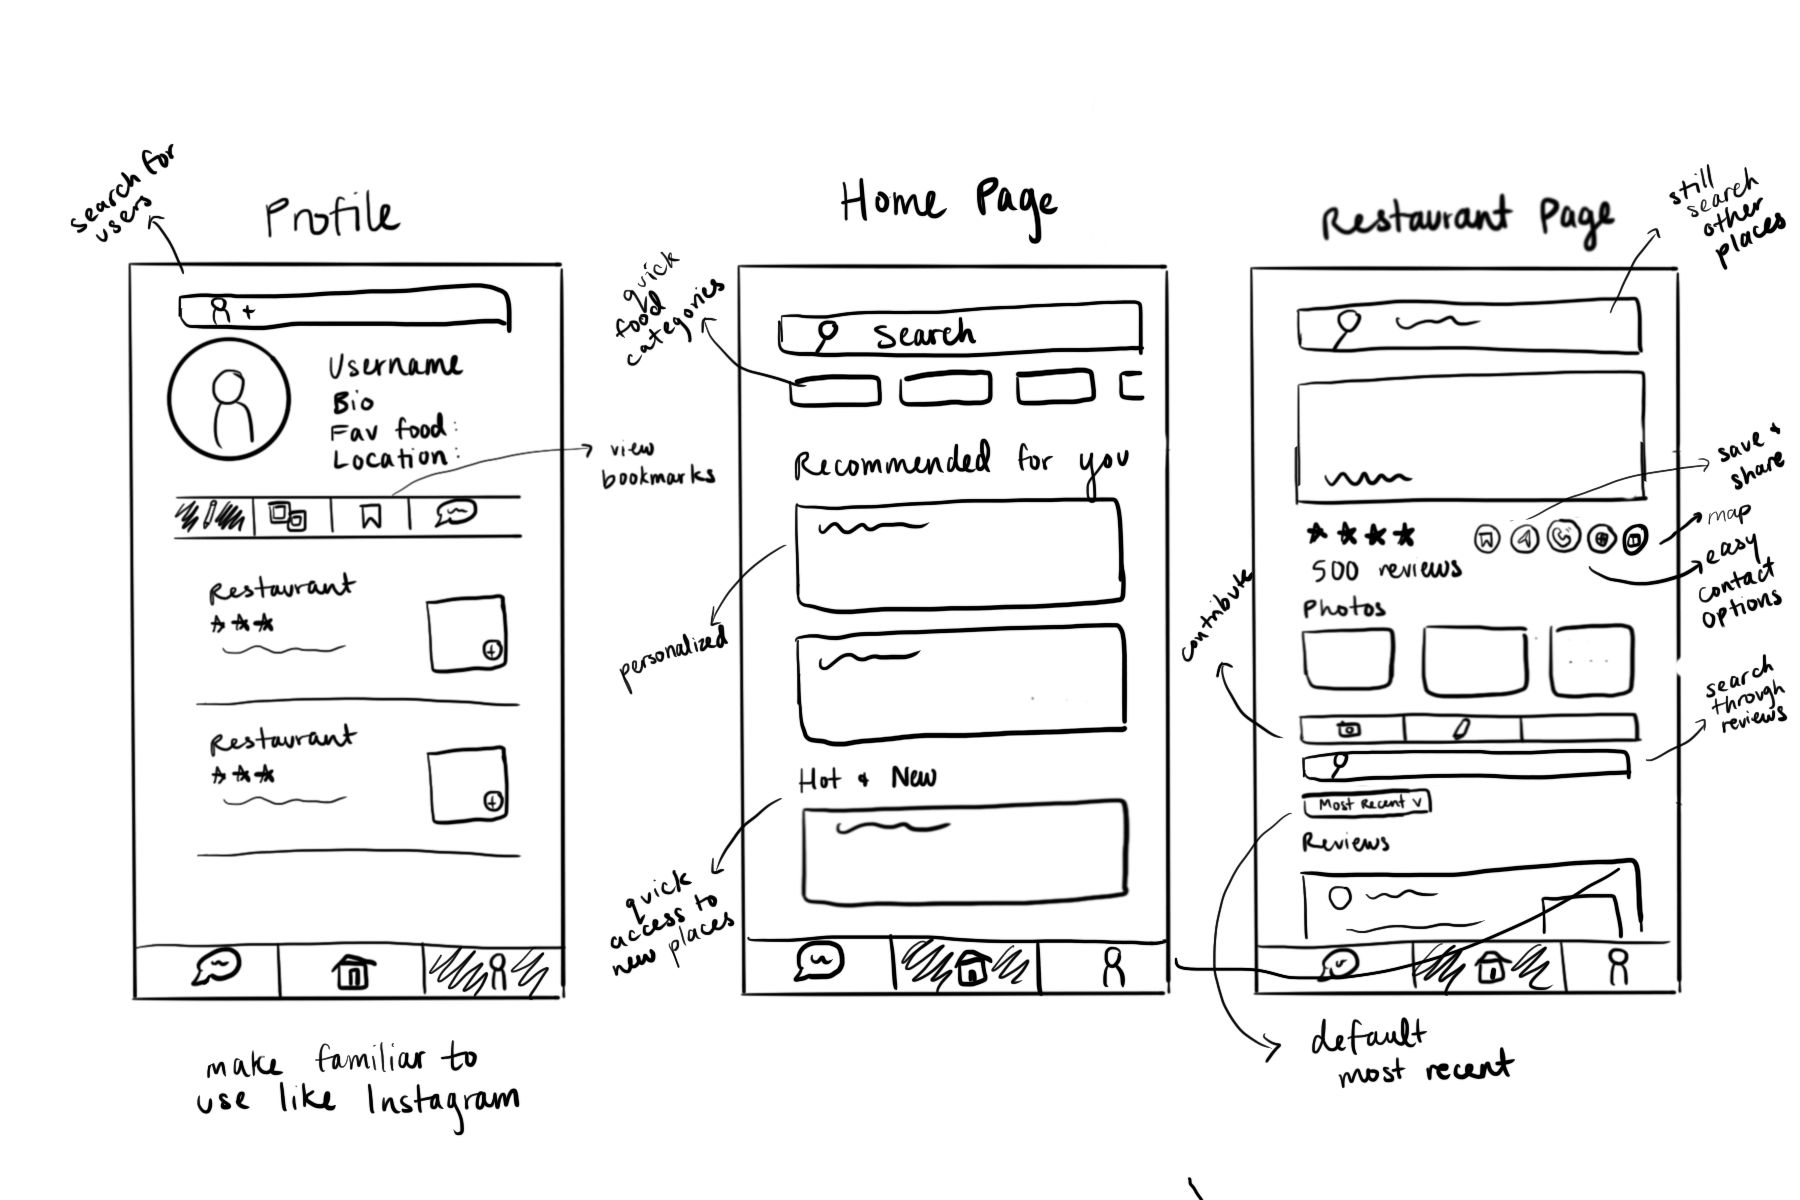 search for
users
Profile
Username
Bio
Fav food:
Location:
view
bookmarks
Restaurant
Restaurant
make familiar to
use like Instagram
Home Page
quick
food
categories
Search
Recommended for you
personalized
Hot & New
quick
access to
new places
Restaurant Page
still
search
other
places
save &
share
map
easy
contact
options
500 reviews
Photos
contribute
search
through
reviews
Most Recent v
Reviews
default
most recent